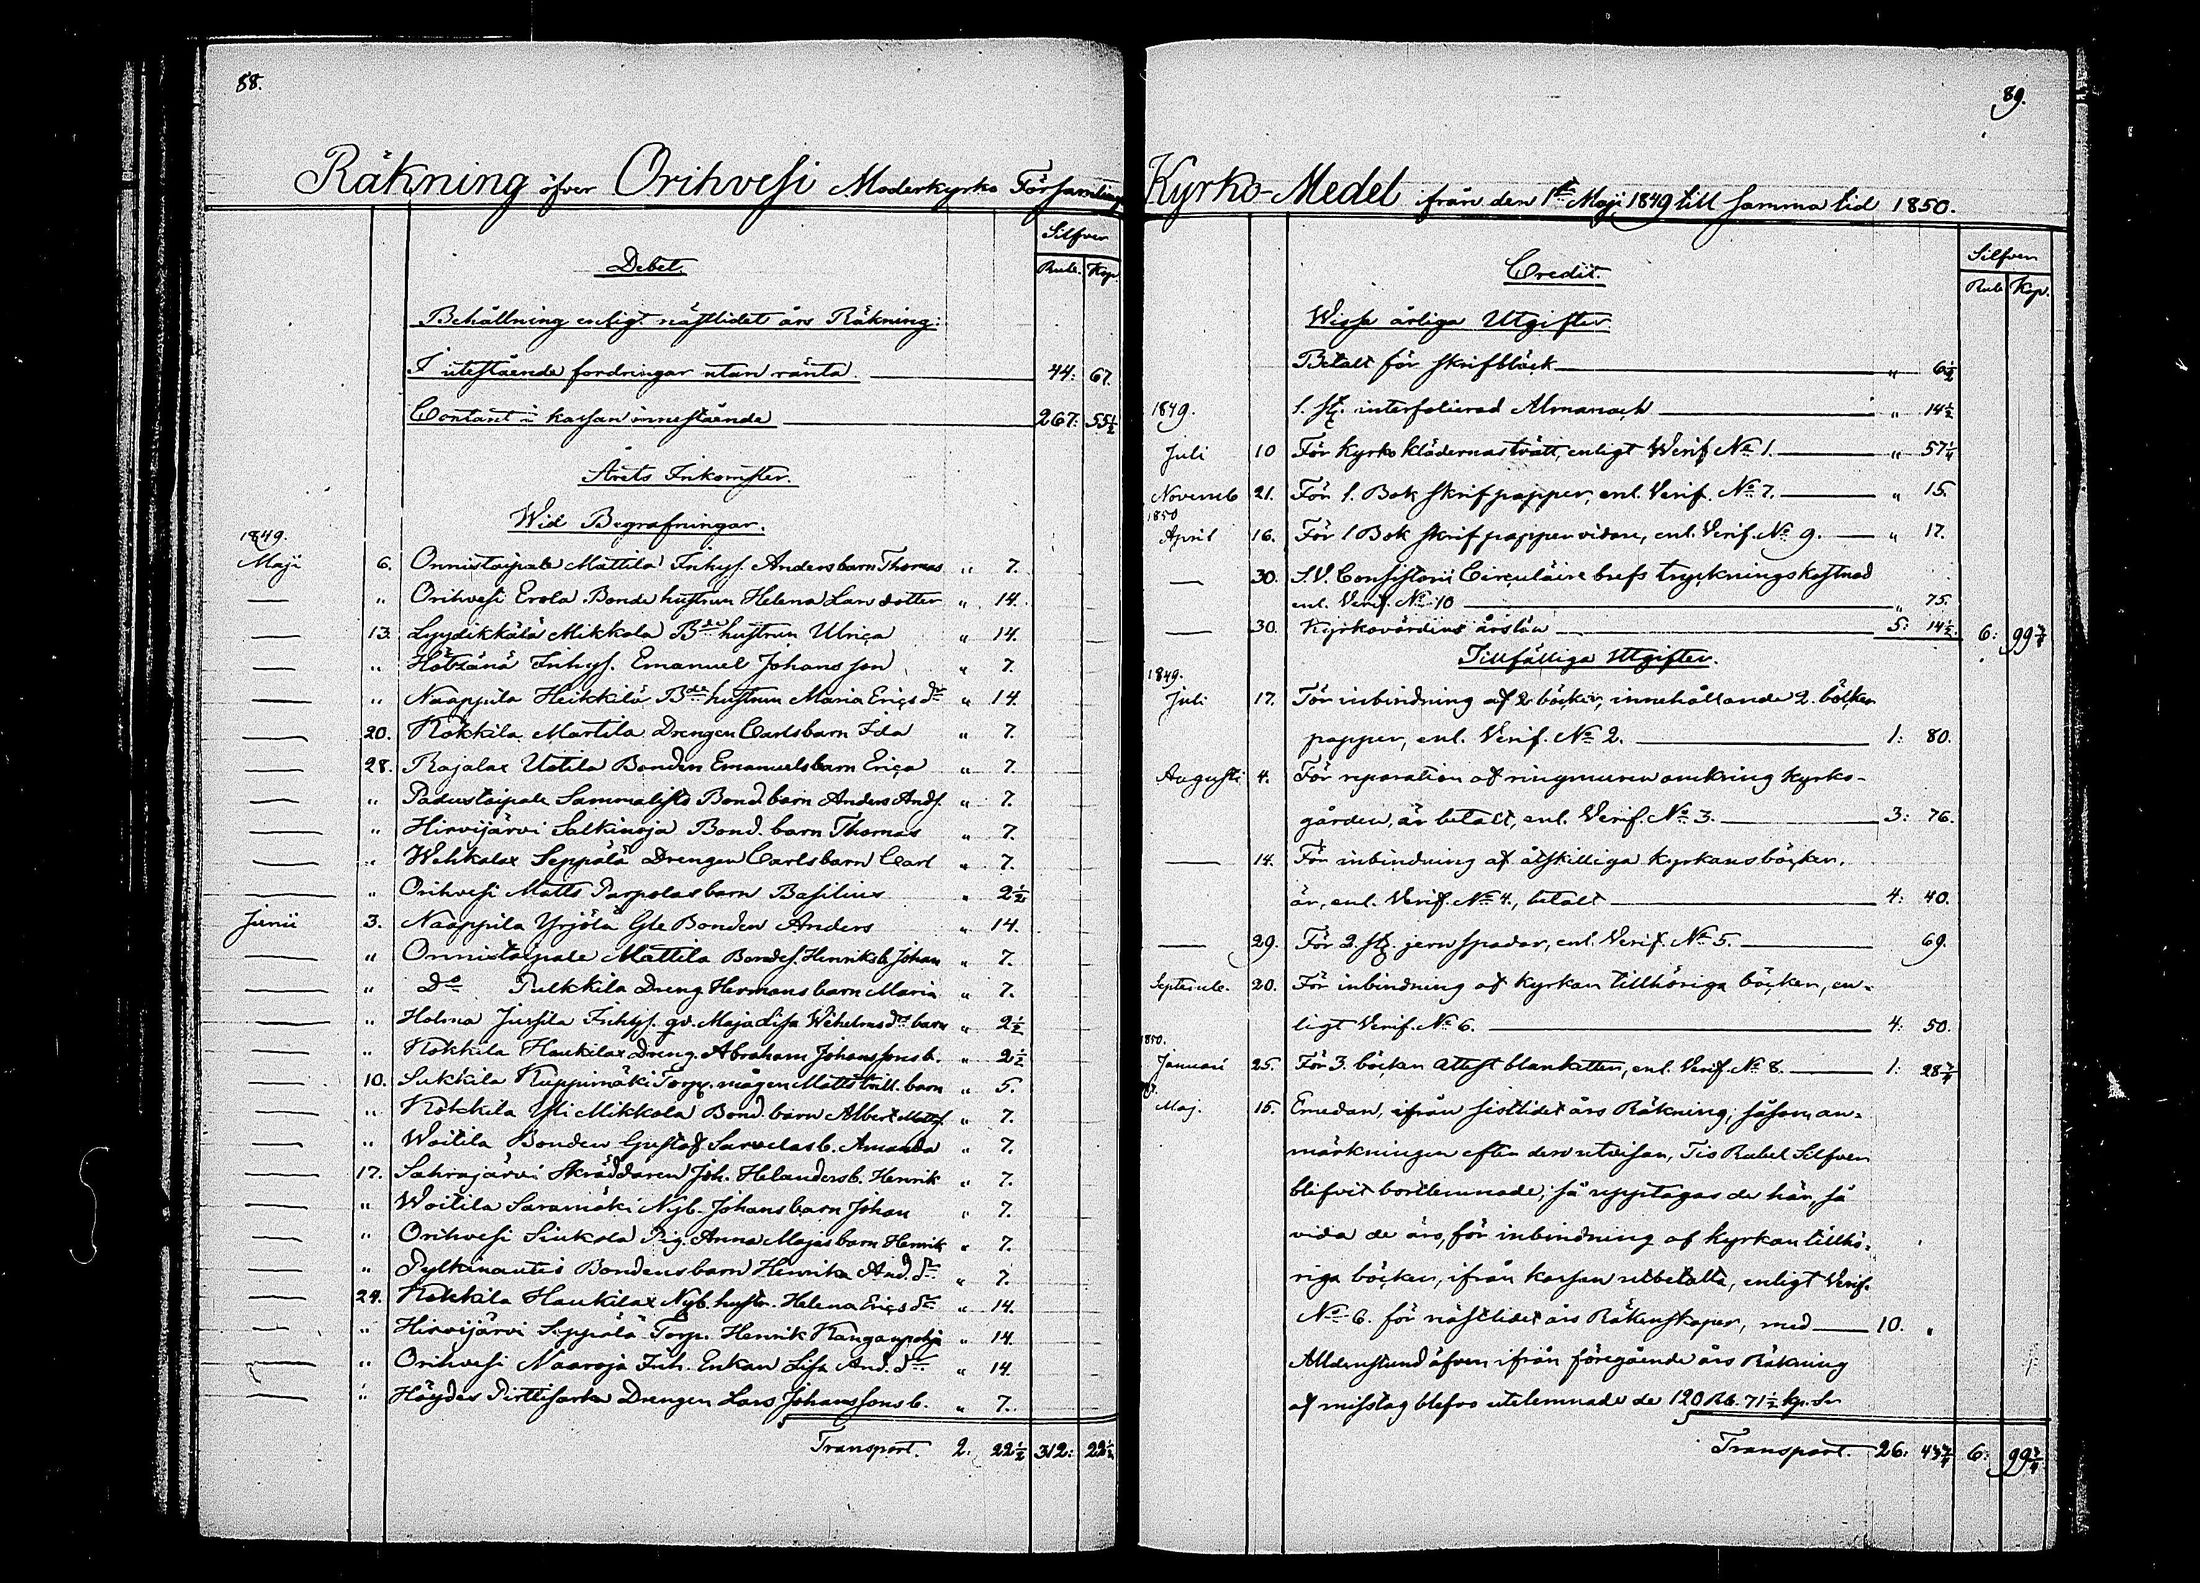 88.
Räkning öfver Orihvesi Moderkyrko Församlings
Silfver
Debet.
Rub. Kop.
Behållning enligt nästlidet års Räkning:
I utestående fordringar utan ränta 44: 67.
Contant i kassan innestående 267: 55½
Årets Inkomster.
Wid Begrafningar.
1849.
Maji 6. Onnistaipale Mattila Inhys. Anders barn Thomas " 7.
— " Orihvesi Erola Bonde hustrun Helena Lars dotter " 14.
— 13. Lyydikkälä Mikkola Bde hustrun Ulrica " 14.
— " Inhys. Emanuel Johansson " 7.
— " Naappila Heikkilä Bde hustrun Maria Erics dr " 14.
— 20. Kokkila Martila Drengen Carls barn Ida " 7.
— 28. Rajalax Uotila Bonden Emanuels barn Erica " 7.
— " Padustaipale Sammalisto Bond. barn Anders Ands. " 7.
— " Hirvijärvi Salkinoja Bond. barn Thomas " 7.
— " Wehkalax Seppälä Drengen Carls barn Carl " 7.
— " Orihvesi Matts Parpolas barn Basilius " 2½
Junii 3. Naappila Yrjölä Gle Bonden Anders " 14.
— " Onnistaipale Mattila Bondes. Henriks b. Johan " 7.
— " Do Pulkkila Dreng Hermans barn Maria " 7.
— " Holma Jussila Inhys. qv. Maja Lisa Wilhelms drs barn " 2½
— " Kokkila Haukilax Dreng. Abraham Johanssons b. " 2½
— 10. Sukkila Kuppimäki Torp. mågen Matts tvill. barn " 5.
— " Kokkila Yli Mikkola Bond. barn Albert Matts. " 7.
— " Woitila Bonden Gustaf Sarvelas b. Amanda " 7.
— 17. Sahrajärvi Skräddaren Joh. Helanders b. Henrik " 7.
— " Woitila Saramäki Nyb. Johans barn Johan " 7.
— " Orihvesi Siukola Pig. Anna Majas barn Henrik " 7.
— " Pylkinautis Bondens barn Henrika And. dr " 7.
— 24. Kokkila Haukilax Nyb. hustr. Helena Erics dr " 14.
— " Hirvijärvi Seppälä Torp. Henrik Kanganpohja " 14.
— " Orihvesi Naaroja Inh. Enkan Lisa And. dr " 14.
— " Höydes Pirttisarka Drengen Lars Johanssons b. " 7.
Transport. 2. 22½ 312: 22½
89.
Kyrko-Medel från den 1ste Maji 1849 till samma tid 1850.
Silfver
Credit.
Rub Kop.
Wissa årliga Utgifter
Betalt för skrifbläck " 6½
1849. 1. st. interfolierad Almanach " 14½
Juli 10 För kyrko klädernas tvätt, enligt Verif No 1. " 57¼
Novemb 21. För 1. Bok skrifpapper, enl. Verif. No 7. " 15.
1850
April 16. För 1 Bok skrifpapper vidare, enl. Verif. No 9. " 17.
— 30. S.V. Consistorii Circulaire brefs tryckningskostnad
enl. Verif. No 10 " 75.
— 30. Kyrkovärdens årslön 5: 14½ 6: 99¾
Tillfälliga Utgifter.
1849.
Juli 17. För inbindning af 2 böcker, innehållande 2. böcker
papper, enl. Verif. No 2. 1: 80.
Augusti 4. För reparation af ringmuren omkring kyrko-
gården, är betalt, enl. Verif. No 3. 3: 76.
— 14. För inbindning af åtskilliga kyrkans böcker,
är, enl. Verif. No 4., betalt 4: 40.
— 29. För 2. st. jern spadar, enl. Verif. No 5. 69.
Septemb. 20. För inbindning af kyrkan tillhöriga böcker, en-
ligt Verif. No 6. 4: 50.
1850.
Januari 25. För 3. böcker attest blanketter, enl. Verif. No 8. 1: 28¾
Maj. 15. Emedan, ifrån sistlidet års Räkning, såsom an-
märkningen efter den utvisar, Tio Rubel Silfver
blifvit bortlemnade; så upptagas de här, så
vida de äro, för inbindning af kyrkan tillhö-
riga böcker, ifrån kassan utbetalta, enligt Verif.
No 6. för nästlidet års Räkenskaper, med 10. "
Alldenstund äfven ifrån föregående års Räkning
af misstag blefvo utelemnade de 120 Rb. 71½ kp. Sr
Transport. 26: 43¾ 6: 99¾